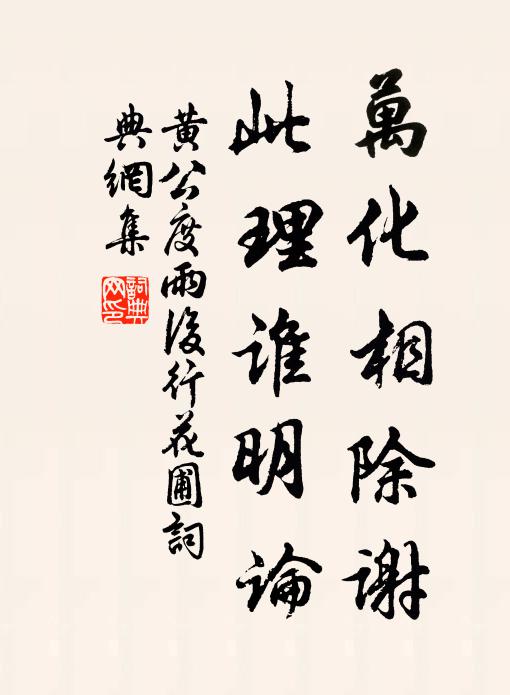 萬化相除谢
此理谁明论
黄公度雨後行花圃詞
典網集
詞典
网印